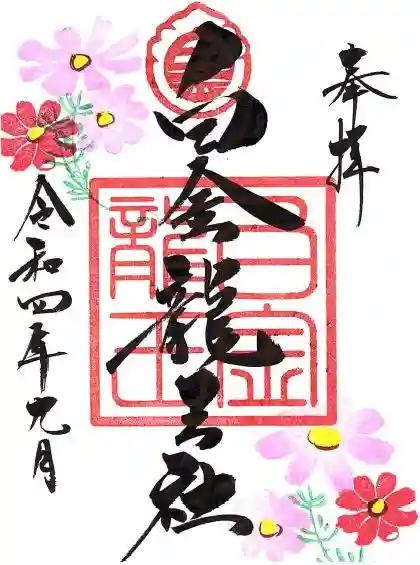 奉拝
白金龍王社
令和四年九月